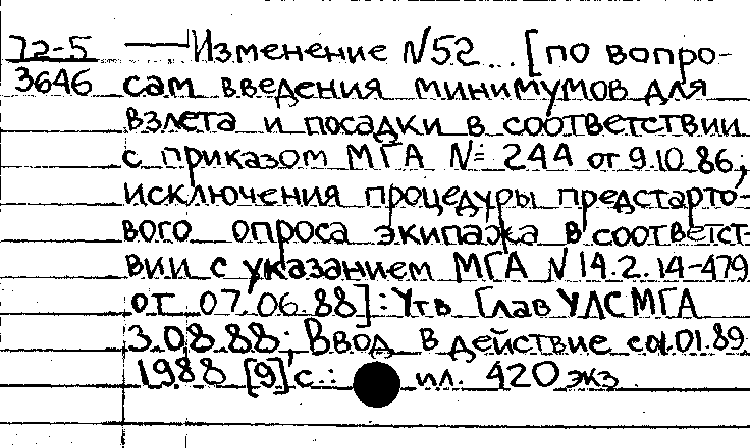 72-5 — Изменение №52... [по вопро-
3646 сам введения минимумов для
взлета и посадки в соответствии
с приказом МГА № 244 от 9.10.86;
исключения процедуры предстарто-
вого опроса экипажа в соответст-
вии с указанием МГА N 14.2.14-479
от 07.06.88]: Утв Глав УЛС МГА
3.08.88; Ввод. в действие с 01.01.89
1988 [9] с.: ил. 420 экз